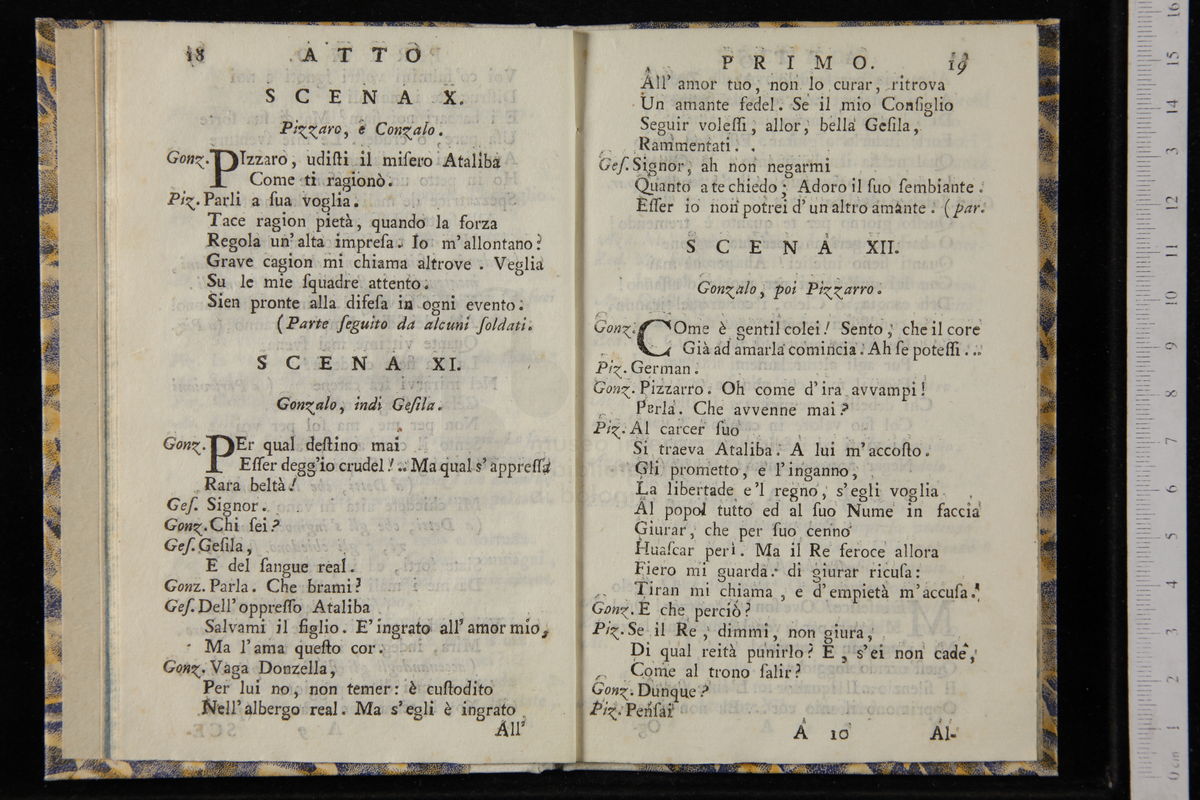 18 ATTO
SCENA X.
Pizzaro, e Conzalo.
Gonz. PIzzaro, udiſti il miſero Ataliba
Come ti ragionò.
Piz. Parli a ſua voglia.
Tace ragion pietà, quando la forza
Regola un'alta impreſa. Io m'allontano?
Grave cagion mi chiama altrove. Veglia
Su le mie ſquadre attento.
Sien pronte alla difeſa in ogni evento.
(Parte ſeguito da alcuni ſoldati.
SCENA XI.
Gonzalo, indi Geſila.
Gonz. PEr qual deſtino mai
Eſſer degg'io crudel! .. Ma qual s'appreſſa
Rara beltà!
Geſ. Signor.
Gonz. Chi ſei?
Geſ. Geſila,
E del ſangue real.
Gonz. Parla. Che brami?
Geſ. Dell'oppreſſo Ataliba
Salvami il figlio. E' ingrato all'amor mio,
Ma l'ama queſto cor.
Gonz. Vaga Donzella,
Per lui no, non temer: è cuſtodito
Nell'albergo real. Ma s'egli è ingrato
All'
PRIMO. 19
All' amor tuo, non lo curar, ritrova
Un amante fedel. Se il mio Conſiglio
Seguir voleſſi, allor, bella Geſila,
Rammentati. .
Geſ. Signor, ah non negarmi
Quanto a te chiedo; Adoro il ſuo ſembiante.
Eſſer io non potrei d'un altro amante. (par.
SCENA XII.
Gonzalo, poi Pizzarro.
Gonz. COme è gentil colei! Sento, che il core
Già ad amarla comincia. Ah ſe poteſſi...
Piz. German.
Gonz. Pizzarro. Oh come d'ira avvampi!
Perla. Che avvenne mai?
Piz. Al carcer ſuo
Si traeva Ataliba. A lui m'accoſto.
Gli prometto, e l'inganno,
La libertade e 'l regno, s'egli voglia
Al popol tutto ed al ſuo Nume in faccia
Giurar, che per ſuo cenno
Huaſcar perì. Ma il Re feroce allora
Fiero mi guarda: di giurar ricuſa:
Tiran mi chiama, e d'empietà m'accuſa.
Gonz. E che perciò?
Piz. Se il Re, dimmi, non giura,
Di qual reità punirlo? E, s'ei non cade,
Come al trono ſalir?
Gonz. Dunque?
Piz. Penſai
A 10 Al-